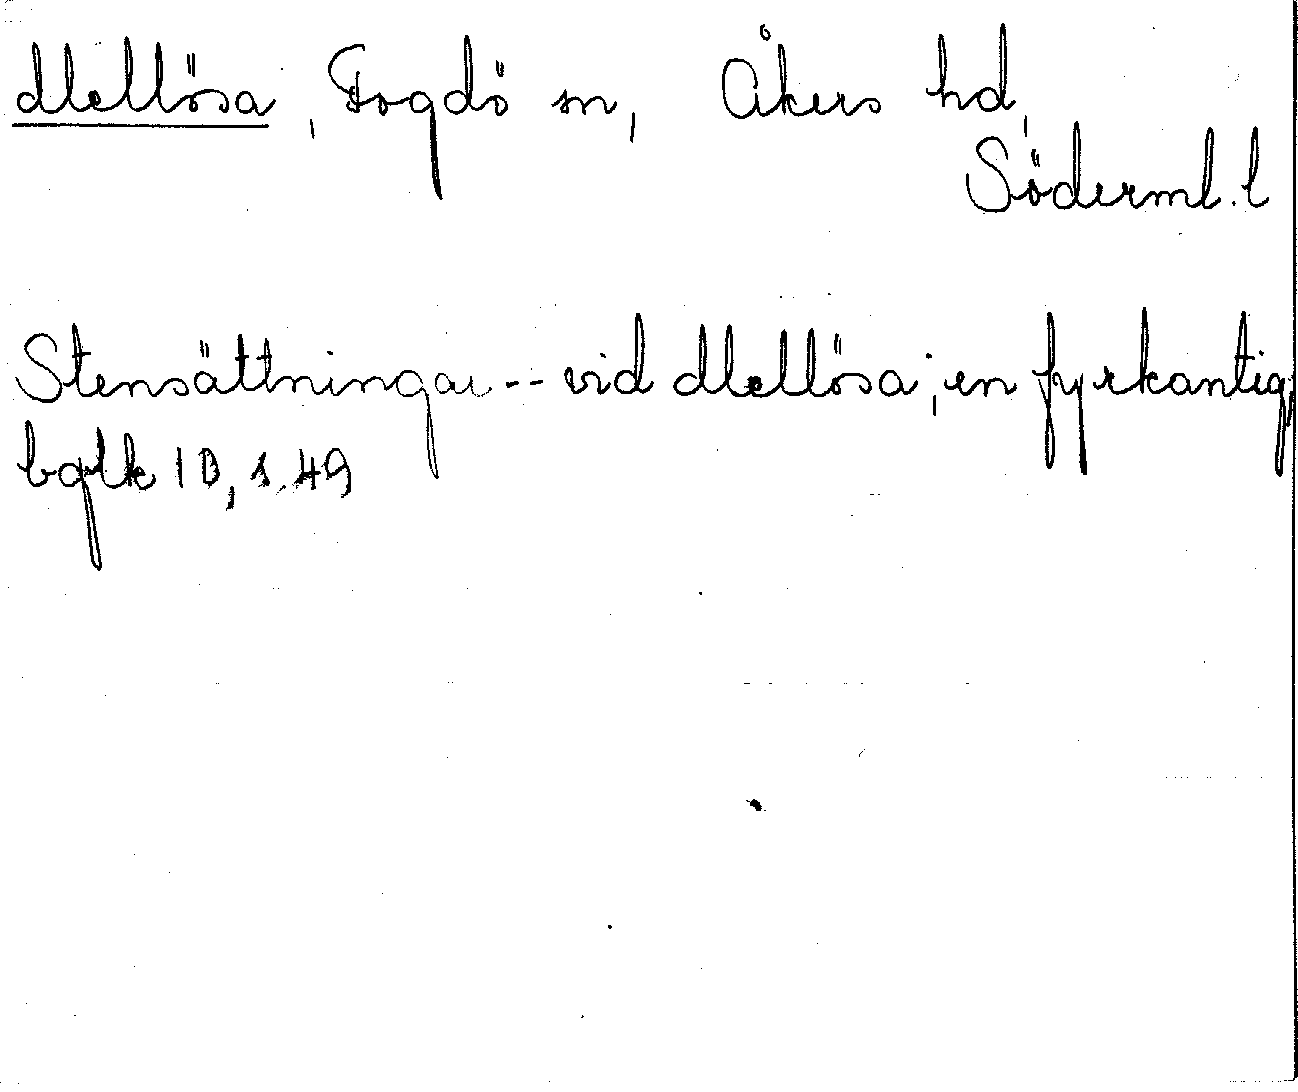 Mellösa, Fogdö sn, Åkers hd,
Söderml. l
Stensättningar -- vid Mellösa, en fyrkantig,
bglk 10, s. 49